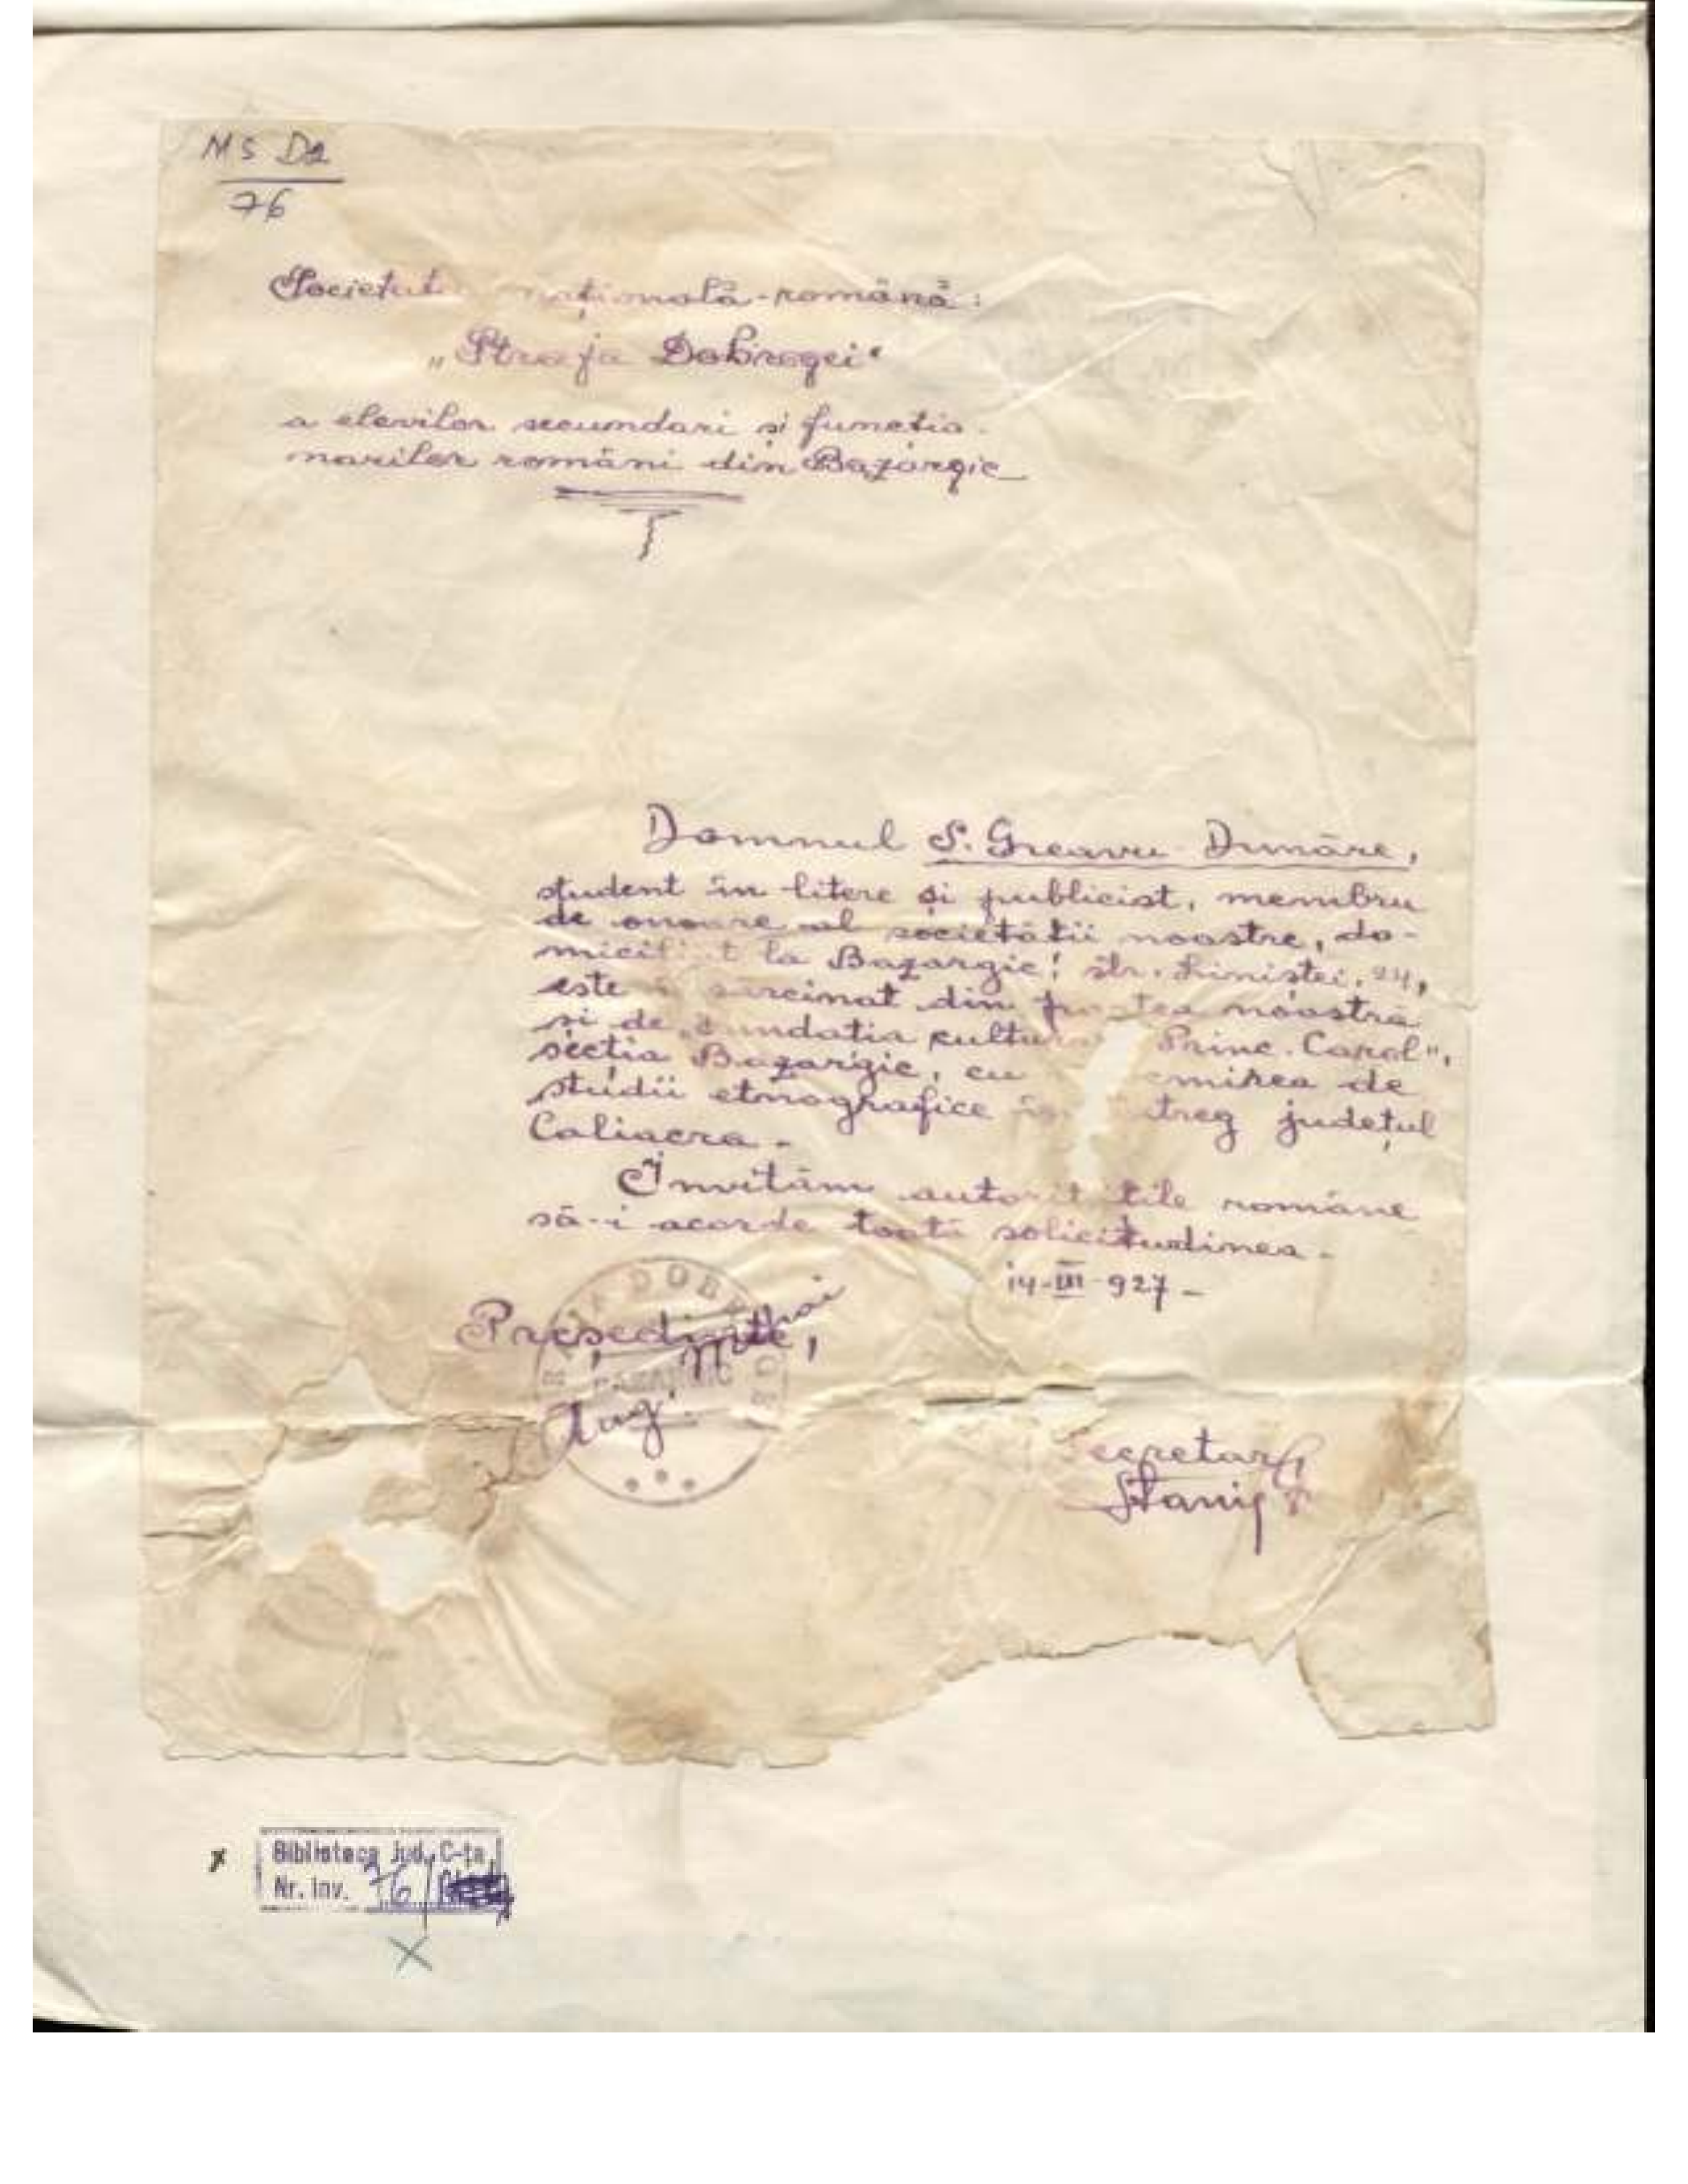 MS D2
76
Societat națională-română:
„Straja Dobrogei"
a elevilor secundari și functio-
narilor români din Bazargic
Domnul S. Greavu Dunăre,
student în litere și publicist, membru
de onoare al societății noastre, do-
micil t la Bazargic, str. Liniștei, 24,
este sarcinat din noastră
și de Princ. Carol",
secția Bazargic, cu de
studii etnografice treg județul
Caliacra.
Invităm autori tile române
să-i acorde toată solicitudinea.
14-III-927-
Președinte,
Aug.
ecretar,
BAZARGIC
Biblioteca Jud. C-ța
Nr. Inv. 76